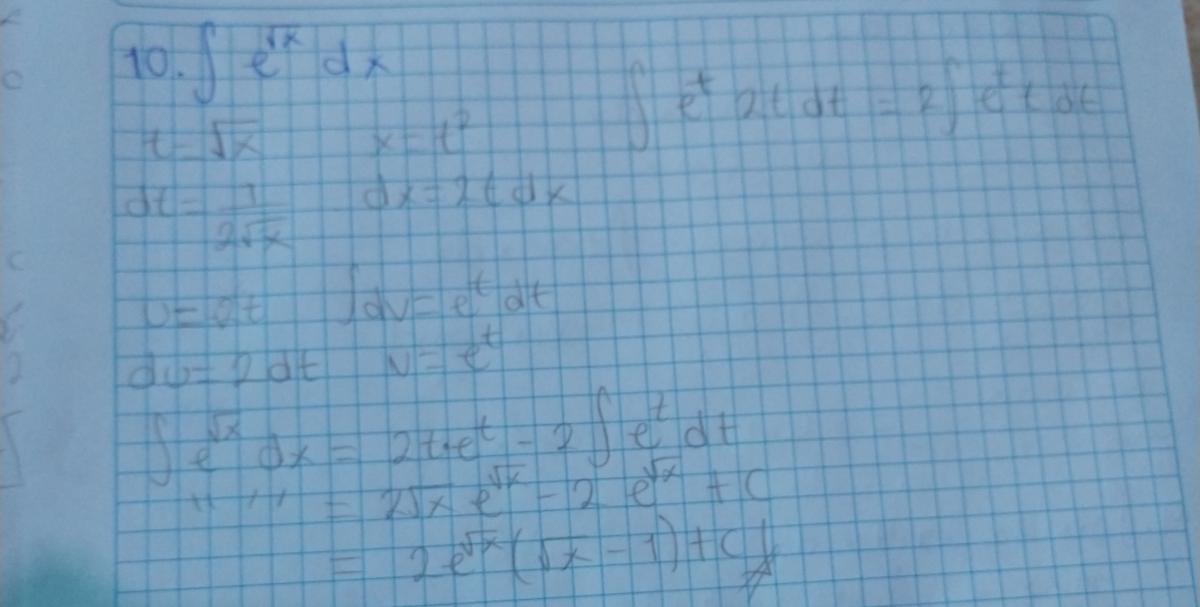 10. ∫ e^√x dx
t = √x x = t² ∫ e^t 2t dt = 2∫ e^t t dt
dt = 1/2√x dx = 2t dx
u = 2t ∫dv = e^t dt
du = 2 dt v = e^t
∫ e^√x dx = 2t·e^t - 2∫ e^t dt
" " = 2√x e^√x - 2 e^√x + C
= 2e^√x (√x - 1) + C